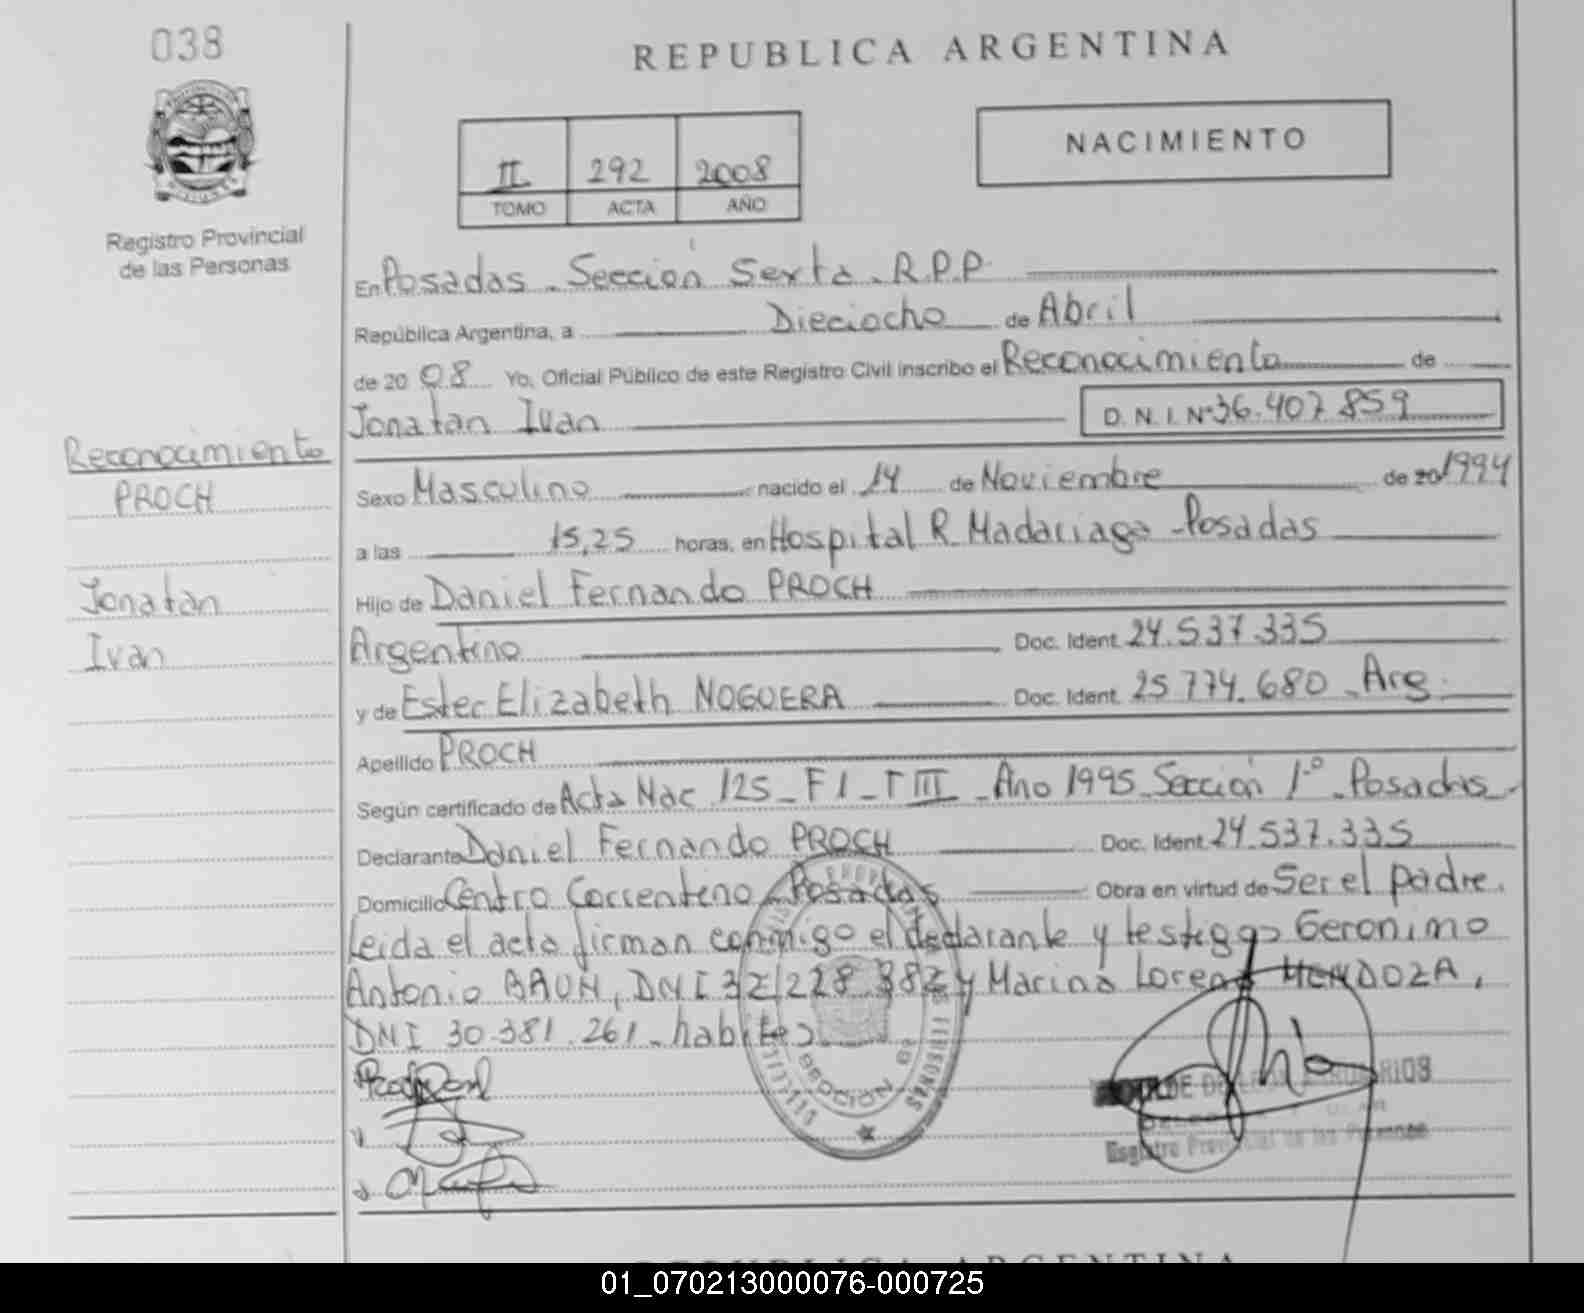 038
REPUBLICA ARGENTINA
NACIMIENTO
II 292 2008
TOMO ACTA AÑO
Registro Provincial
de las Personas
En Posadas - Sección Sexta - R.P.P.
República Argentina, a Dieciocho de Abril
de 2008 Yo, Oficial Público de este Registro Civil inscribo el Reconocimiento de
Jonatan Ivan D.N.I.Nº 36.407.859
Reconocimiento
PROCH
Jonatan
Ivan
Sexo Masculino nacido el 14 de Noviembre de 20 1994
a las 15,25 horas, en Hospital R. Madariaga - Posadas
Hijo de Daniel Fernando PROCH
Argentino Doc. Ident. 24.537.335
y de Ester Elizabeth NOGUERA Doc. Ident. 25.774.680 - Arg.
Apellido PROCH
Según certificado de Acta Nac 125 - F1 - T III - Año 1995 - Sección 1º - Posadas
Declarante Daniel Fernando PROCH Doc. Ident. 24.537.335
Domicilio Centro Correntino Posadas Obra en virtud de Ser el padre.
Leída el acta firman conmigo el declarante y testigos Geronimo
Antonio BRUN, DNI 32.228.382 y Marina Lorena MENDOZA,
DNI 30.381.261 - habiles
SECCION 6ª
Registro Provincial de las Personas
REPUBLICA ARGENTINA
01_070213000076-000725